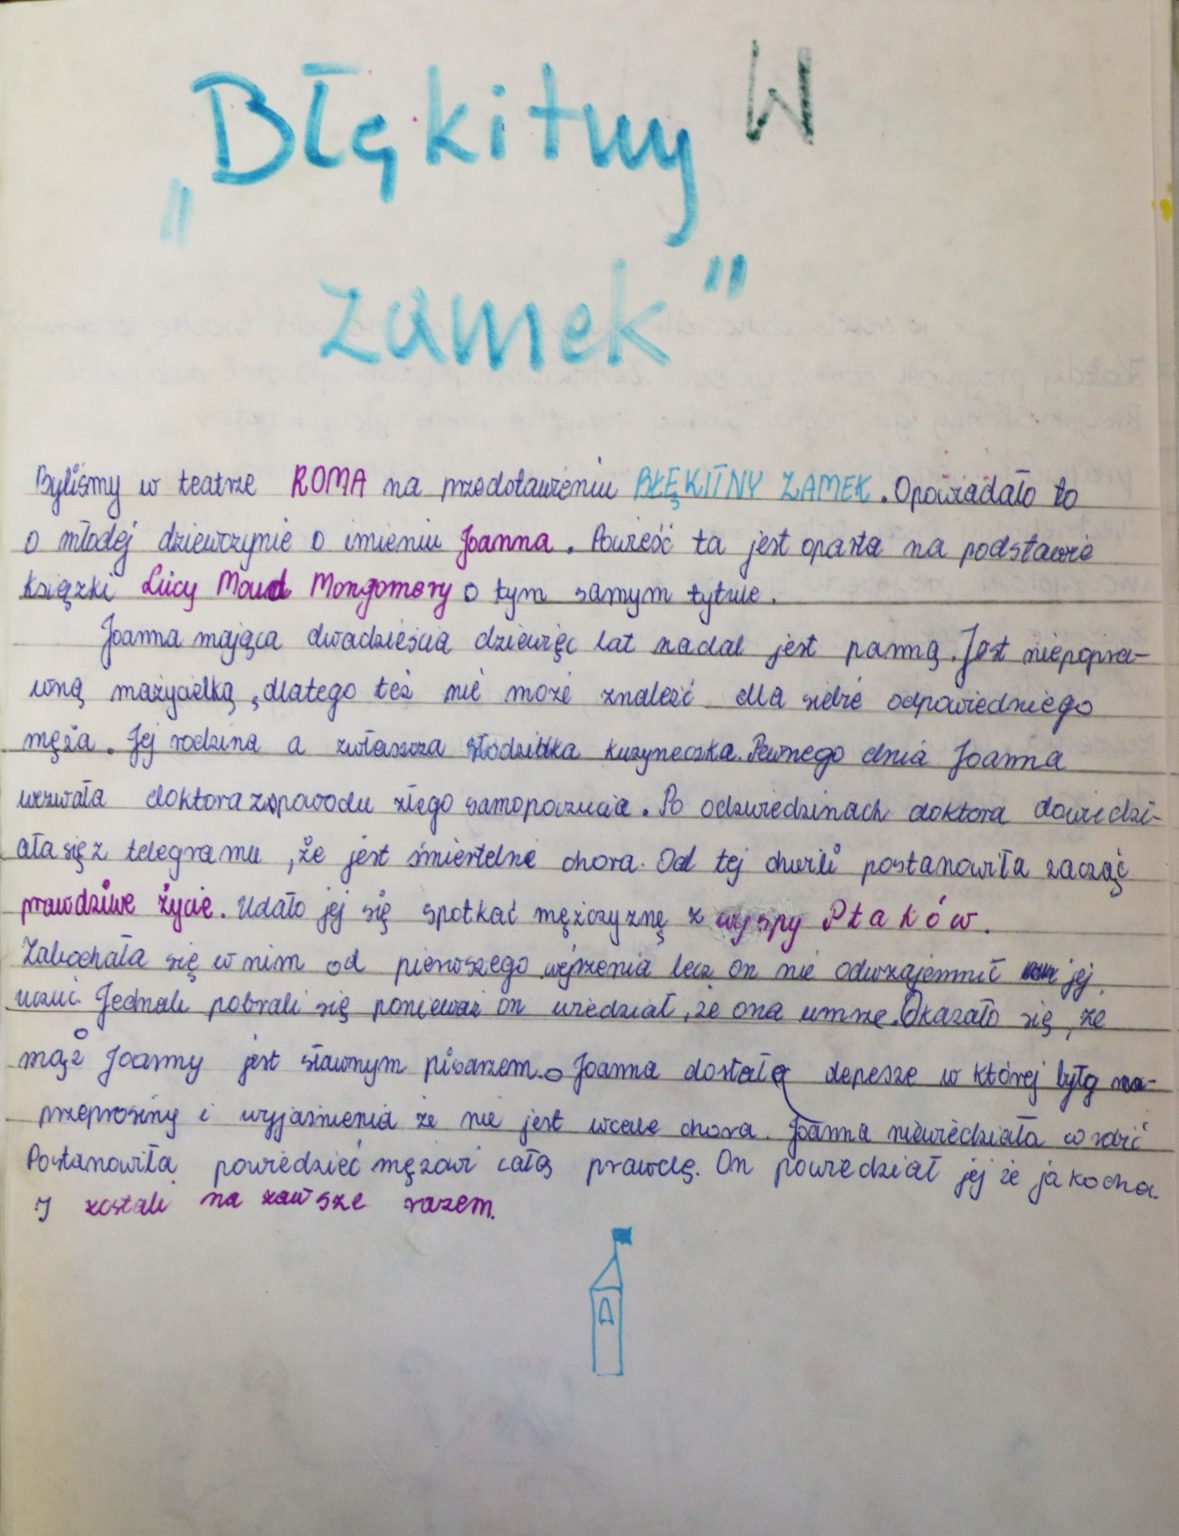 Błękitny W
„zamek"
Byliśmy w teatrze ROMA na przedstawieniu BŁĘKITNY ZAMEK. Opowiadało to
o młodej dziewczynie o imieniu Joanna. Powieść ta jest oparta na podstawie
książki Lucy Maud Mongomery o tym samym tytule.
Joanna mająca dwadzieścia dziewięć lat nadal jest panną. Jest niepopra-
wną mażycielką, dlatego też nie może znaleść dla siebie odpowiedniego
męża. Jej rodzina a zwłaszcza słodziutka kuzyneczka. Pewnego dnia Joanna
wezwała doktora z powodu złego samopoczucia. Po odzwiedzinach doktora dowiedzi-
ała się z telegramu, że jest śmiertelnie chora. Od tej chwili postanowiła zacząć
prawdziwe życie. Udało jej się spotkać mężczyznę z wyspy Ptaków.
Zakochała się w nim od pierwszego wejrzenia lecz on nie odwzajemnił jej
uczuć. Jednak pobrali się ponieważ on wiedział, że ona umrze. Okazało się, że
mąż Joanny jest sławnym pisarzem. Joanna dostała depesze w której były
przeprosiny i wyjaśnienia że nie jest wcale chora. Joanna niewiedziała co robić
Postanowiła powiedzieć mężowi całą prawdę. On powiedział jej że ja kocha.
I zostali na zawsze razem.